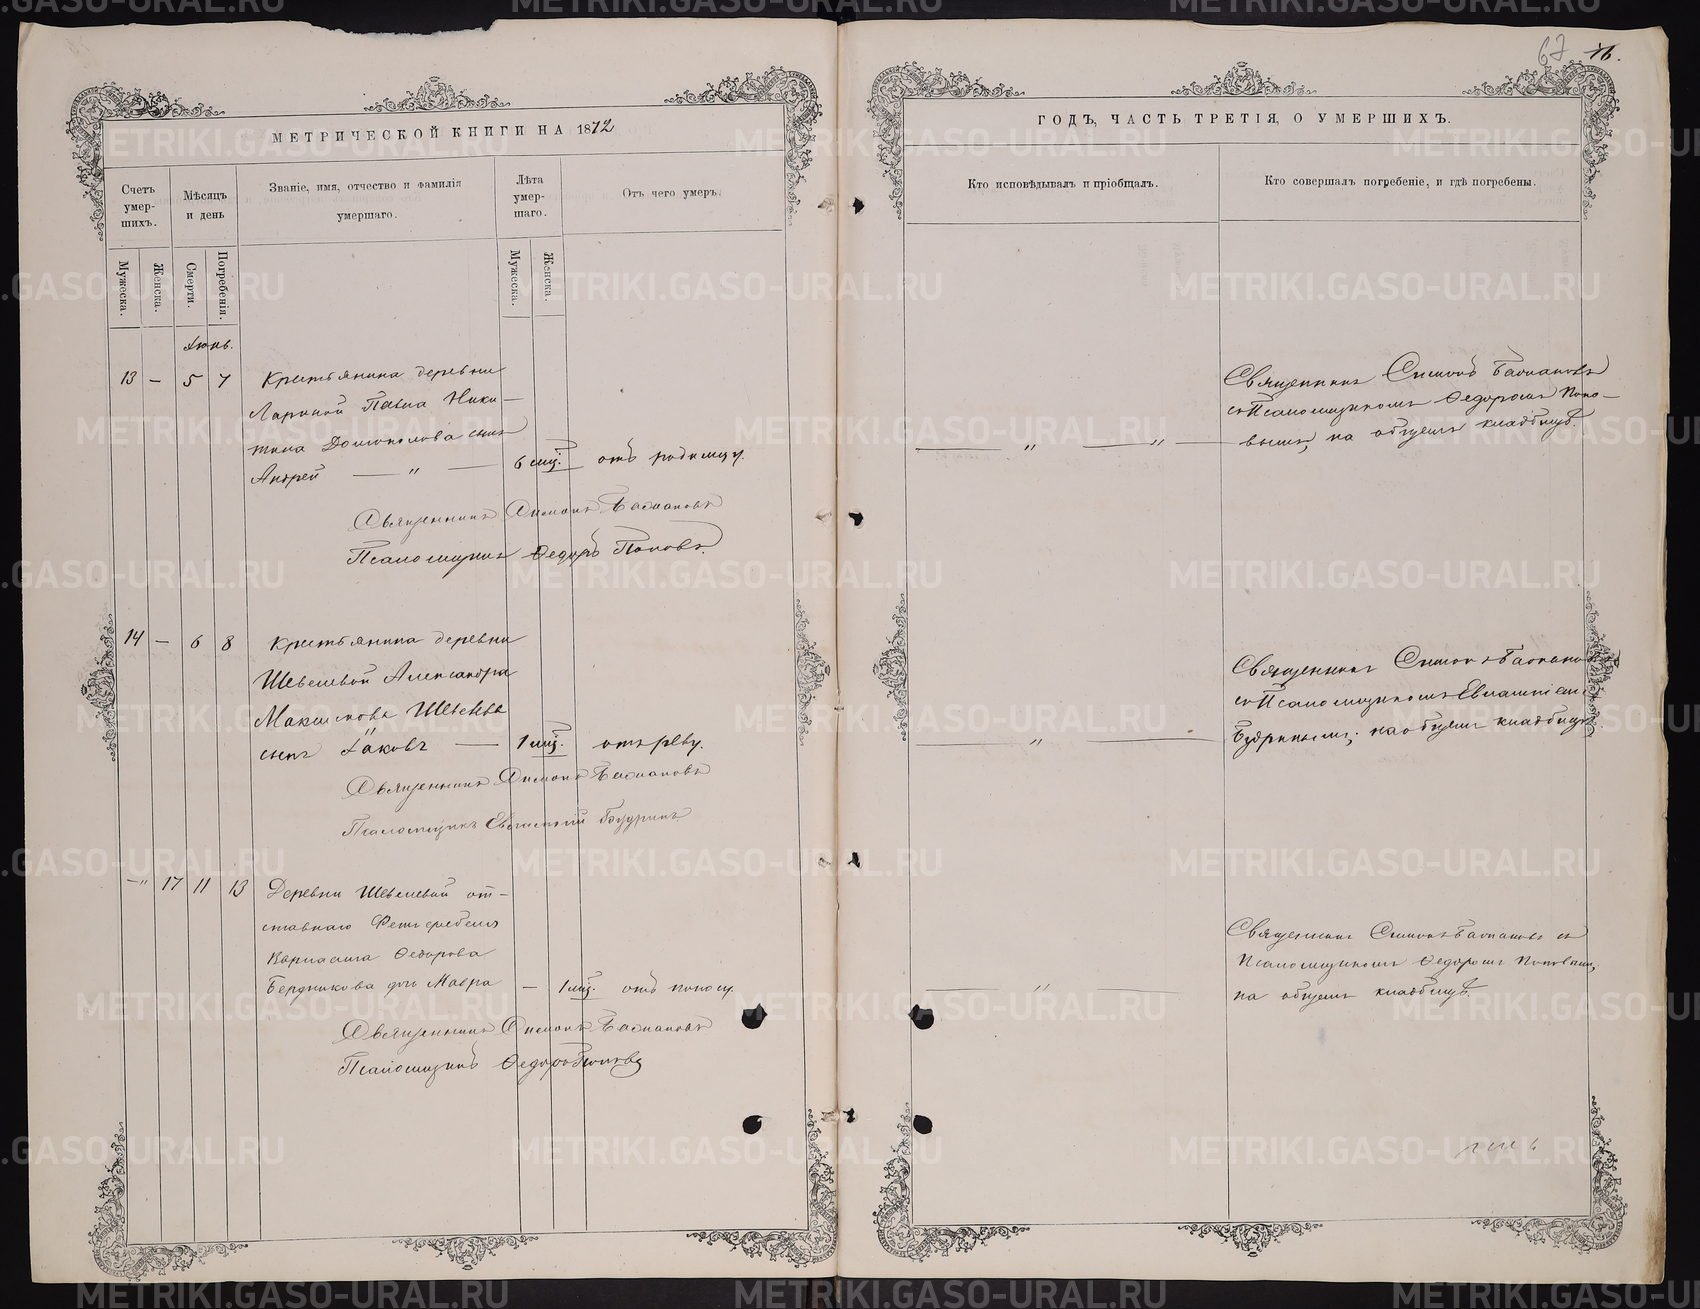 67 16.
МЕТРИЧЕСКОЙ КНИГИ НА 1872
Счетъ умер-шихъ.
Мѣсяцъ и день
Званіе, имя, отчество и фамилія умершаго.
Лѣта умер-шаго.
Отъ чего умеръ.
Мужеска.
Женска.
Смерти.
Погребенія.
Мужеска.
Женска.
Іюнь.
13 — 5 7 Крестьянина деревни
Лариной Павла Ники-
тина Домополова сынъ
Андрей — " — 6 мц. отъ родимцу.
Священникъ Симонъ Баснановъ
Псаломщикъ Ѳедоръ Поповъ.
14 — 6 8 Крестьянина деревни
Шевелевой Александра
Максимова Шевелева
сынъ Іаковъ — 1 мц. отъ реву.
Священникъ Симонъ Баснановъ
Псаломщикъ Евлампій Бодринъ
—" 17 11 13 Деревни Шевелевой от-
ставнаго Фельдфебеля
Варлаама Ѳедорова
Бердникова дочь Мавра — 1 мц. отъ поносу.
Священникъ Симонъ Баснановъ
Псаломщикъ Ѳедоръ Поповъ
ГОДЪ, ЧАСТЬ ТРЕТІЯ, О УМЕРШИХЪ.
Кто исповѣдывалъ и пріобщалъ.
Кто совершалъ погребеніе, и гдѣ погребены.
Священникъ Симонъ Баснановъ
съ Псаломщикомъ Ѳедоромъ Попо-
вымъ, на общемъ кладбищѣ.
— " — " —
Священникъ Симонъ Баснановъ
съ Псаломщикомъ Евлампіемъ
Бодринымъ; на общемъ кладбищѣ.
— " —
Священникъ Симонъ Баснановъ съ
Псаломщикомъ Ѳедоромъ Поповымъ,
на общемъ кладбищѣ.
— " —
METRIKI.GASO-URAL.RU